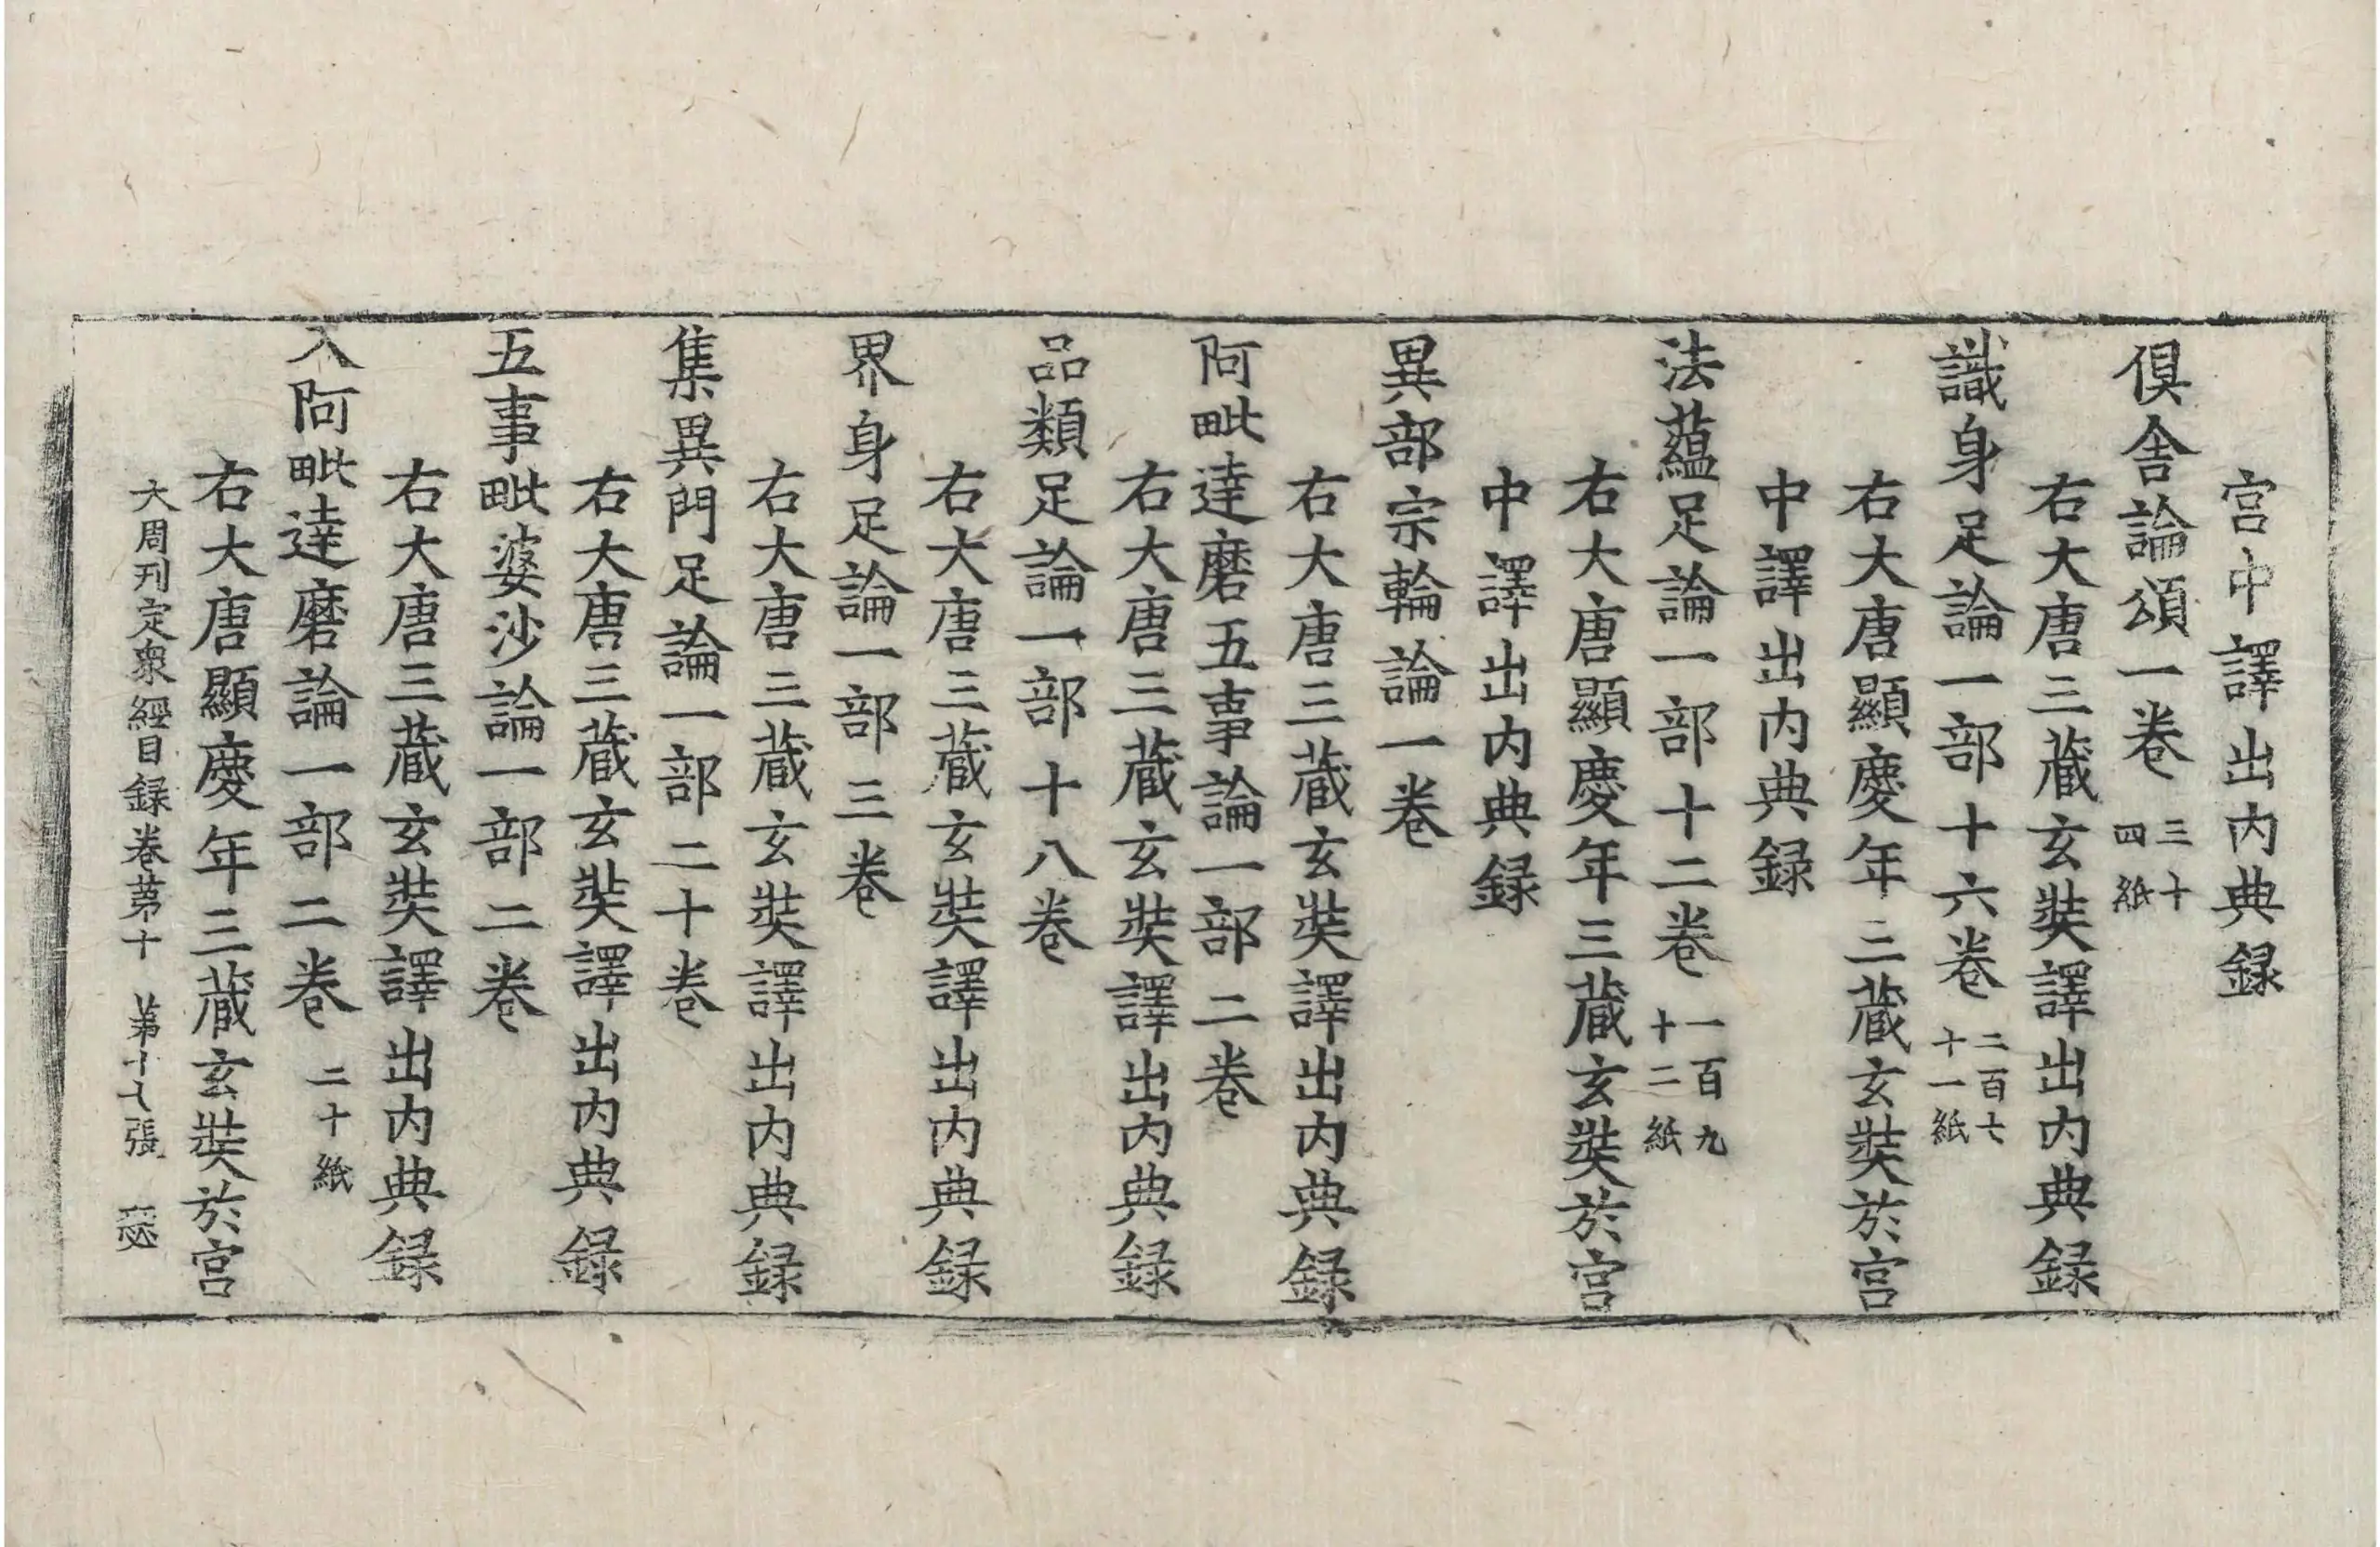 宮中譯出内典録
俱舍論頌一卷三十四紙
右大唐三藏玄奘譯出内典録
識身足論一部十六卷二百七十一紙
右大唐顯慶年三藏玄奘於宮
中譯出内典録
法蘊足論一部十二卷一百九十二紙
右大唐顯慶年三藏玄奘於宮
中譯出内典録
異部宗輪論一卷
右大唐三藏玄奘譯出内典録
阿毗達磨五事論一部二卷
右大唐三藏玄奘譯出内典録
品類足論一部十八卷
右大唐三藏玄奘譯出内典録
界身足論一部三卷
右大唐三藏玄奘譯出内典録
集異門足論一部二十卷
右大唐三藏玄奘譯出内典録
五事毗婆沙論一部二卷
右大唐三藏玄奘譯出内典録
入阿毗達磨論一部二卷二十紙
右大唐顯慶年三藏玄奘於宮
大周刊定衆經目録卷苐十 苐十七張